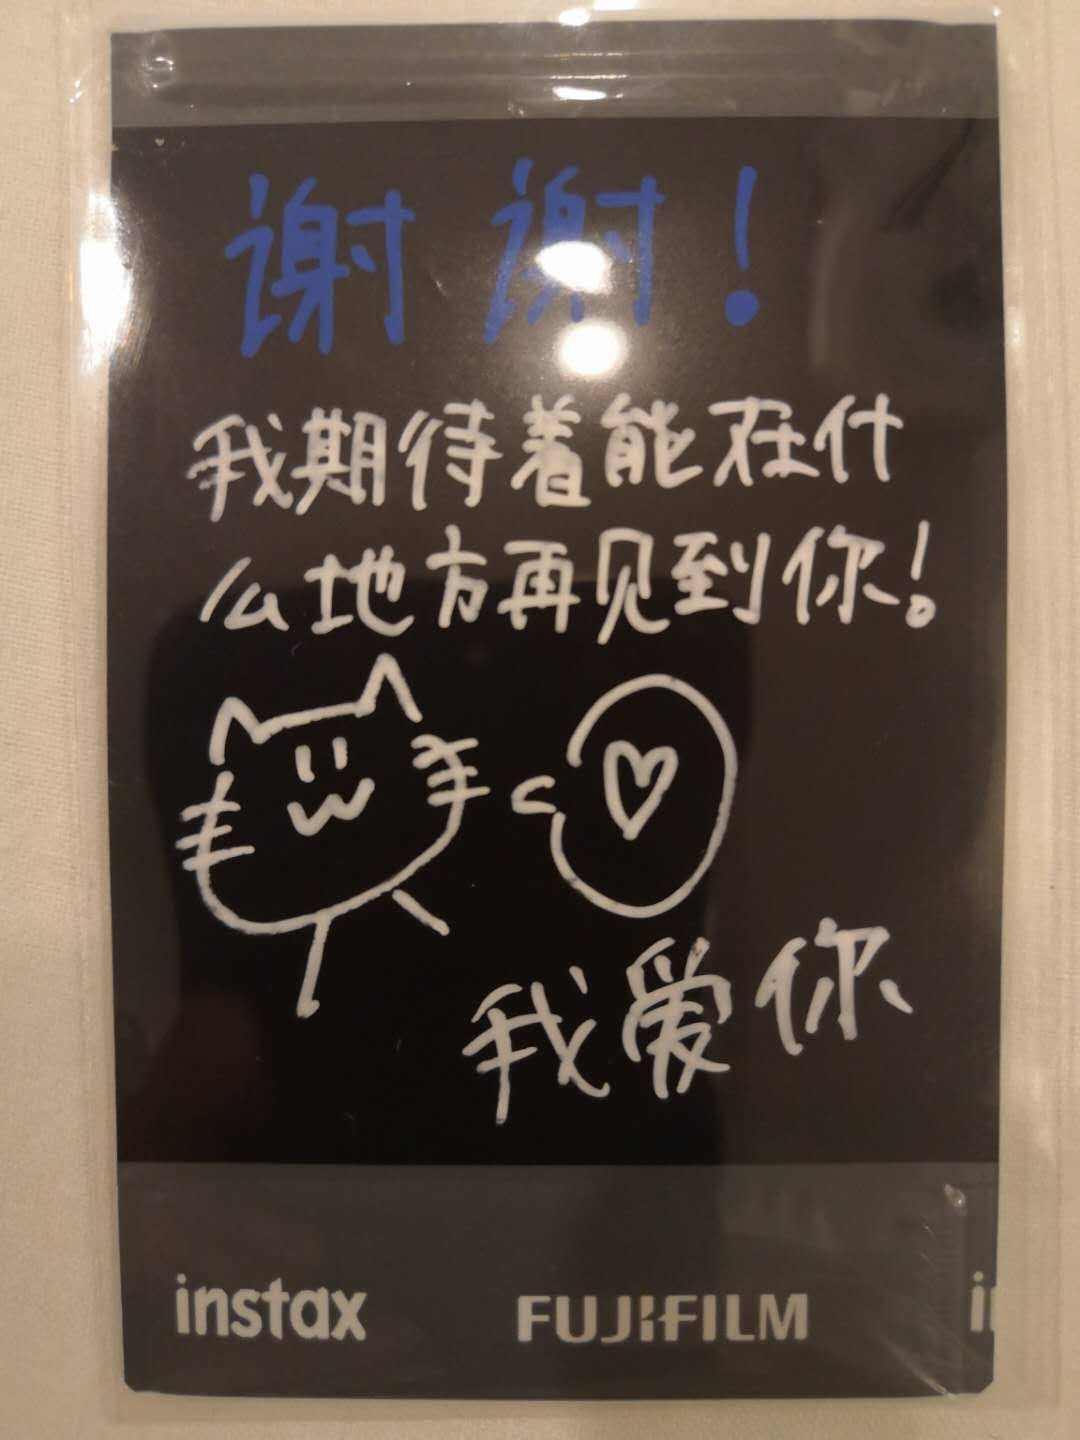 谢谢!
我期待着能在什
么地方再见到你!
我爱你
instax FUJIFILM